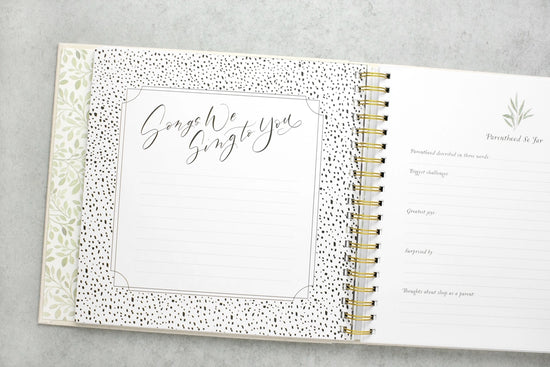 Songs We
Sing to You
Parenthood So Far
Parenthood described in three words
Biggest challenges
Greatest joys
Surprised by
Thoughts about sleep as a parent